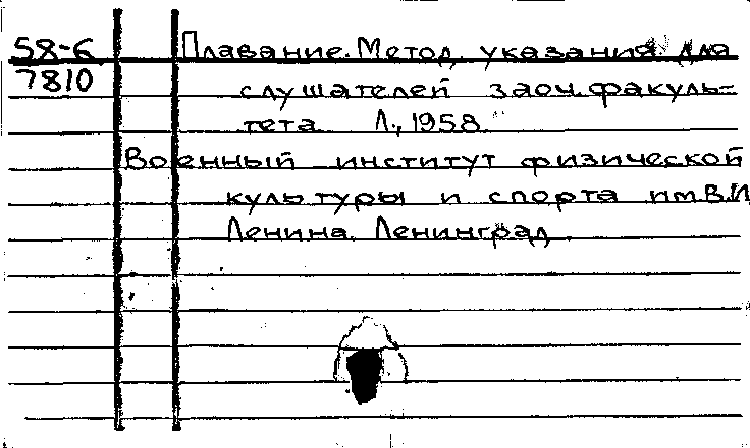 58-6 Плавание. Метод. указания для
7810 слушателей заоч. факуль-
тета Л., 1958.
Военный институт физической
культуры и спорта им В.И
Ленина. Ленинград